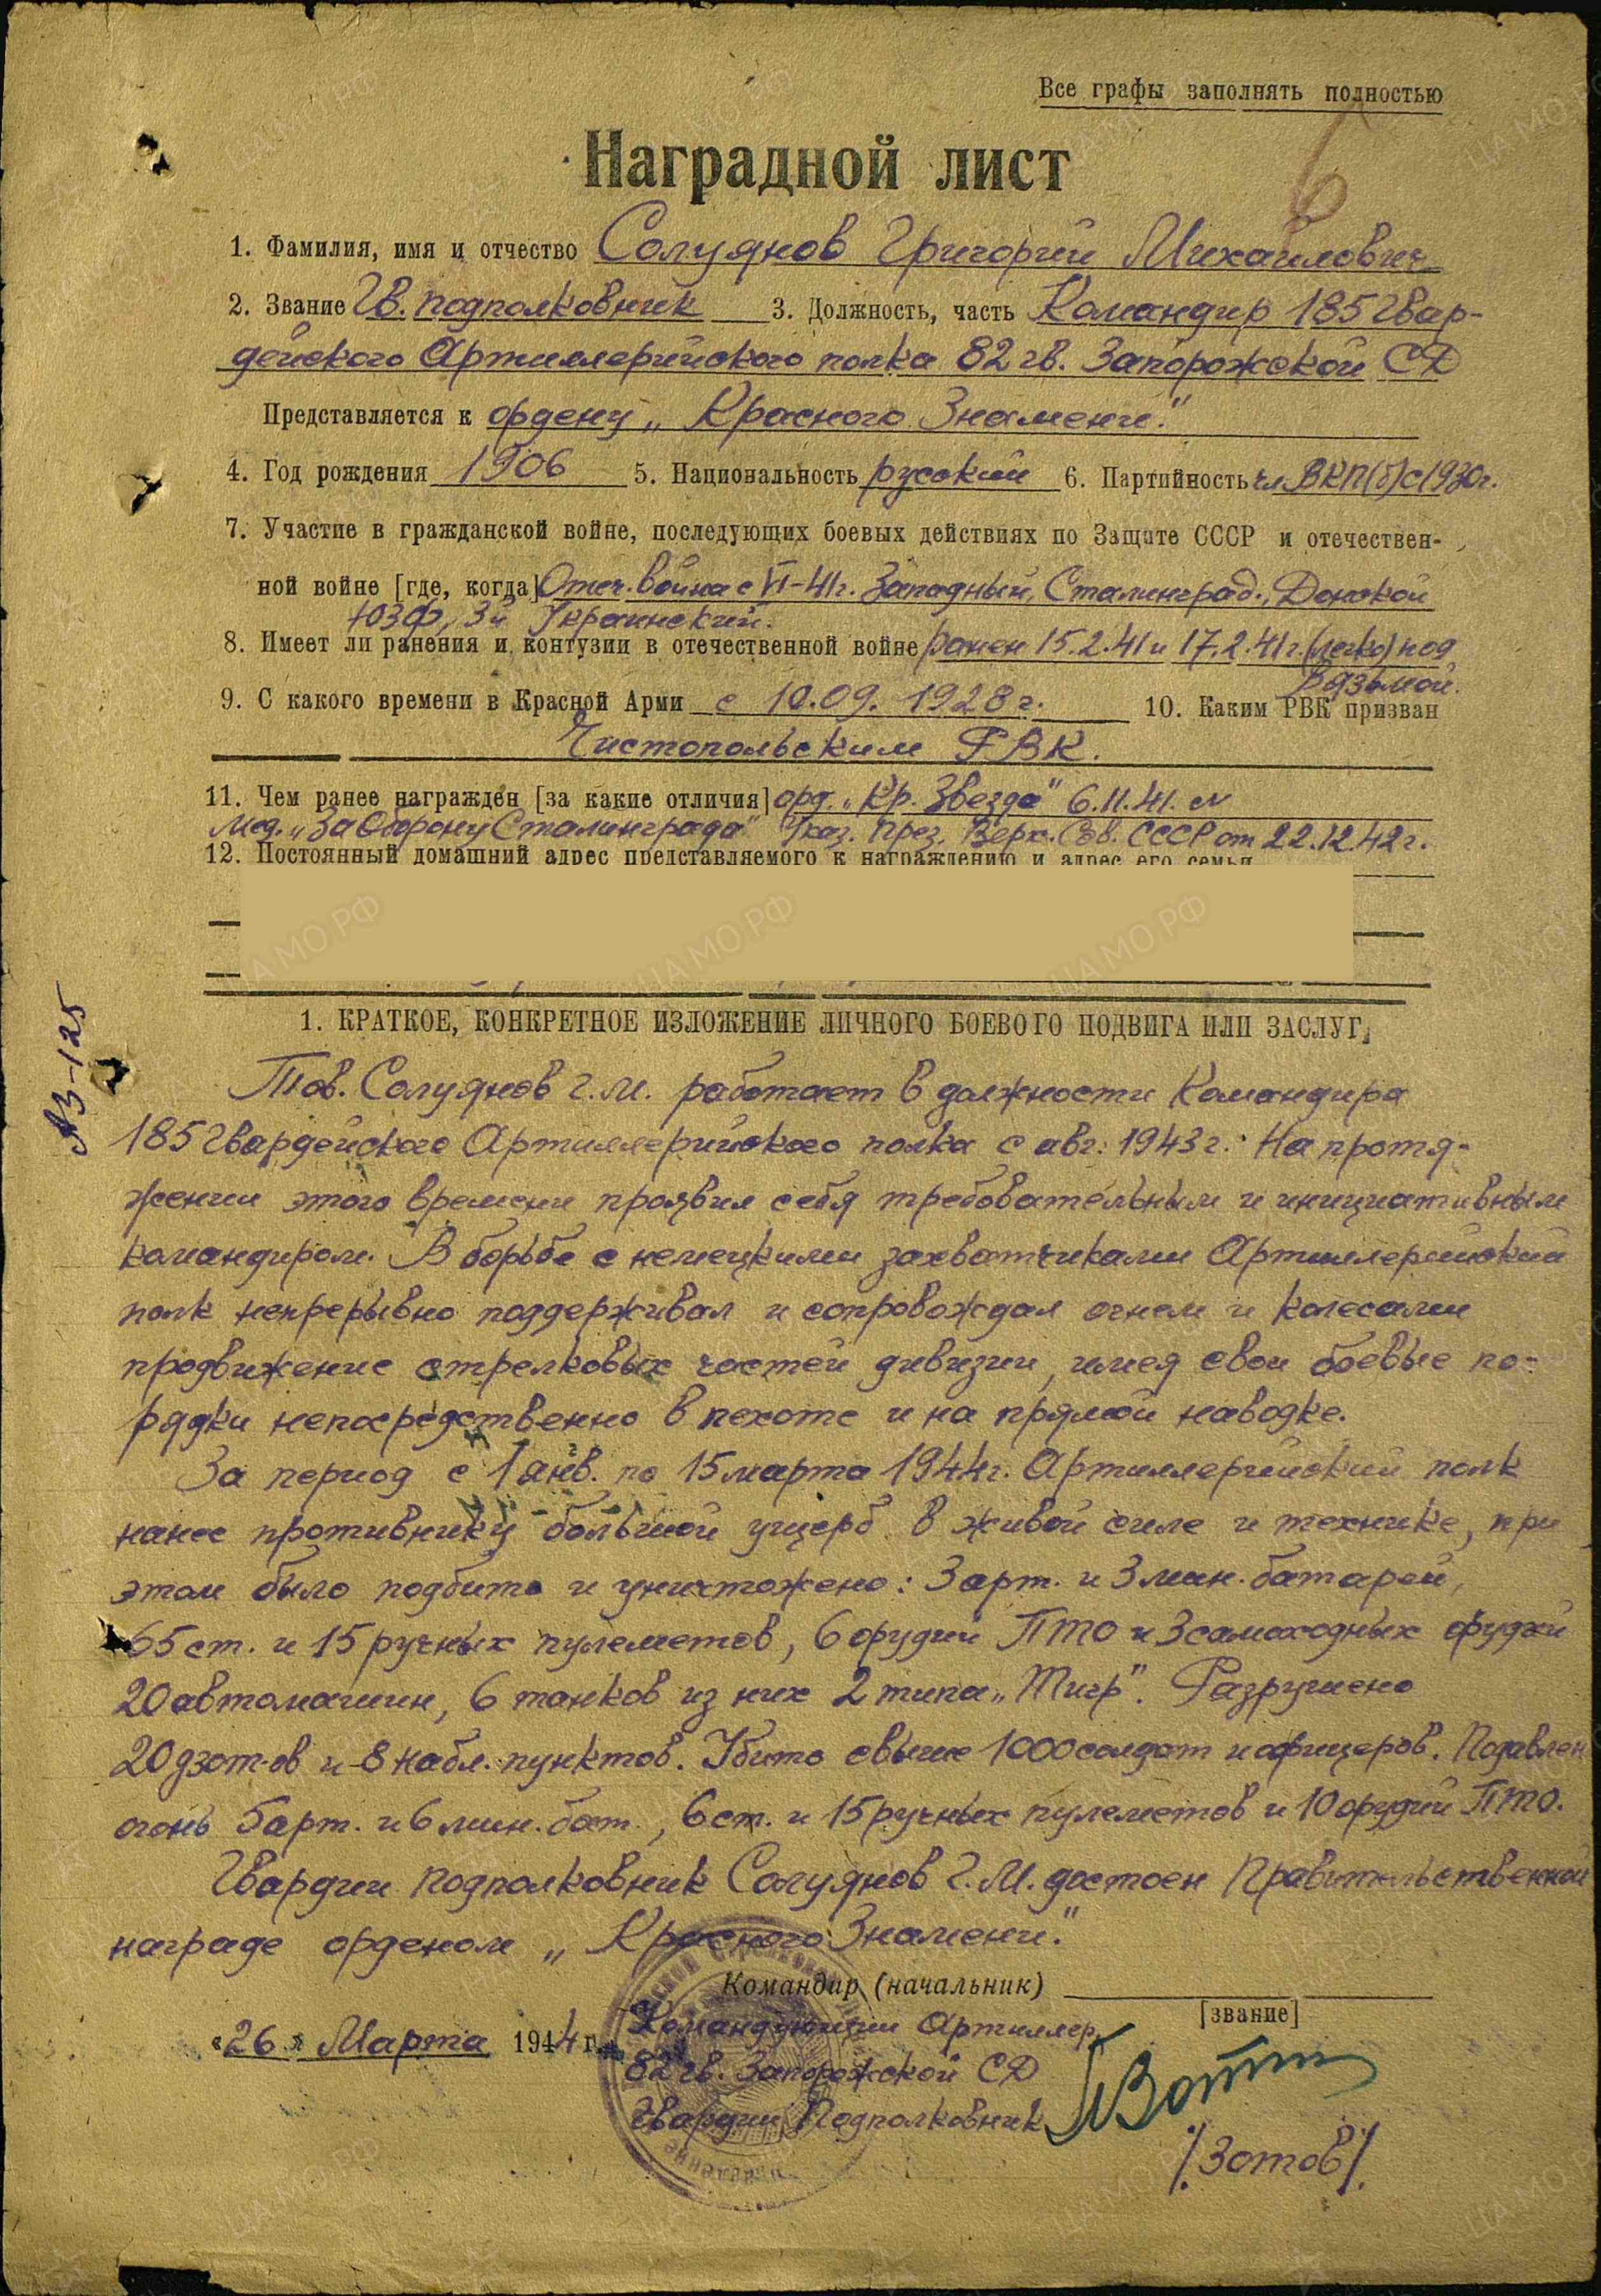 Все графы заполнять полностью
6
Наградной лист
1. Фамилия, имя и отчество Солуянов Григорий Михайлович
2. Звание Гв. подполковник 3. Должность, часть Командир 185 Гвар-
дейского Артиллерийского полка 82 гв. Запорожской СД
Представляется к ордену „Красного Знамени."
4. Год рождения 1906 5. Национальность русский 6. Партийность чл ВКП(б) с 1930г.
7. Участие в гражданской войне, последующих боевых действиях по Защите СССР и отечествен-
ной войне [где, когда] Отеч. война с VI-41г. Западный, Сталинград., Донской
ЮЗФ, 3й Украинский.
8. Имеет ли ранения и контузии в отечественной войне ранен 15.2.41 и 17.2.41г. (легко) под
Вязьмой.
9. С какого времени в Красной Арми с 10.09.1928г. 10. Каким РВК призван
Чистопольским РВК.
11. Чем ранее награжден [за какие отличия] орд. „Кр. Звезда" 6.11.41. и
Мед. „За Оборону Сталинграда" Указ. През. Верх. Сов. СССР от 22.12.42г.
12. Постоянный домашний адрес представляемого к награждению и адрес его семьи
1. КРАТКОЕ, КОНКРЕТНОЕ ИЗЛОЖЕНИЕ ЛИЧНОГО БОЕВОГО ПОДВИГА ИЛИ ЗАСЛУГ
АЗ-125
Тов. Солуянов Г.М. работает в должности Командира
185 Гвардейского Артиллерийского полка с авг. 1943г. На протя-
жении этого времени проявил себя требовательным и инициативным
командиром. В борьбе с немецкими захватчиками Артиллерийский
полк непрерывно поддерживал и сопровождал огнем и колесами
продвижение стрелковых частей дивизии, имея свои боевые по-
рядки непосредственно в пехоте и на прямой наводке.
За период с 1 янв. по 15 марта 1944г. Артиллерийский полк
нанес противнику большой ущерб в живой силе и технике, при
этом было подбито и уничтожено: 3 арт. и 3 мин. батареи,
65 ст. и 15 ручных пулеметов, 6 орудий ПТО и 3 самоходных орудий
20 автомашин, 6 танков из них 2 типа „Тигр". Разрушено
20 дзот-ов и 8 набл. пунктов. Убито свыше 1000 солдат и офицеров. Подавлен
огонь 5 арт. и 6 мин. бат., 6 ст. и 15 ручных пулеметов и 10 орудий ПТО.
Гвардии подполковник Солуянов Г.М. достоен Правительственной
награде орденом „Красного Знамени."
Командир (начальник)
[звание]
«26» Марта 1944 г.
Командующий Артиллер.
82 гв. Запорожской СД
Гвардии Подполковник
/Зотов/